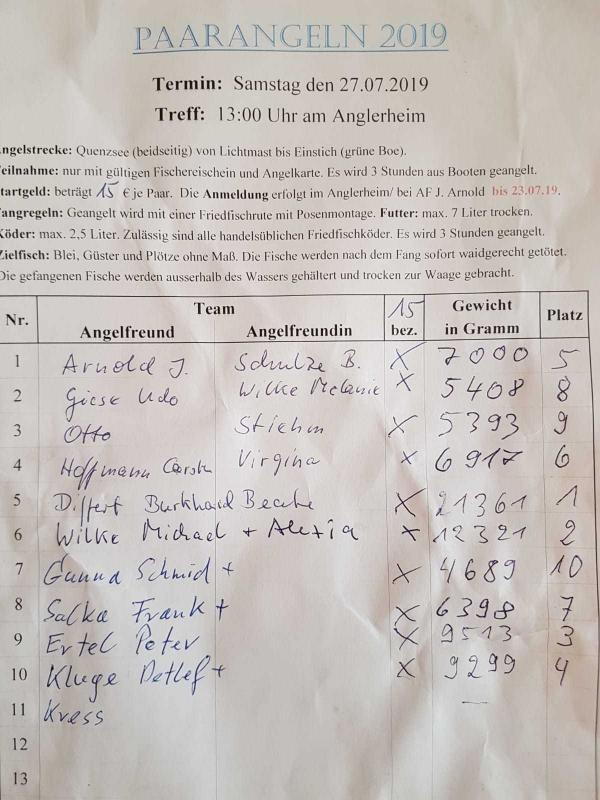 PAARANGELN 2019
Termin: Samstag den 27.07.2019
Treff: 13:00 Uhr am Anglerheim
ngelstrecke: Quenzsee (beidseitig) von Lichtmast bis Einstich (grüne Boe).
eilnahme: nur mit gültigen Fischereischein und Angelkarte. Es wird 3 Stunden aus Booten geangelt.
tartgeld: beträgt 15 € je Paar. Die Anmeldung erfolgt im Anglerheim/ bei AF J. Arnold bis 23.07.19.
angregeln: Geangelt wird mit einer Friedfischrute mit Posenmontage. Futter: max. 7 Liter trocken.
Köder: max. 2,5 Liter. Zulässig sind alle handelsüblichen Friedfischköder. Es wird 3 Stunden geangelt.
Zielfisch: Blei, Güster und Plötze ohne Maß. Die Fische werden nach dem Fang sofort waidgerecht getötet.
Die gefangenen Fische werden ausserhalb des Wassers gehältert und trocken zur Waage gebracht.
Nr. Team 15 bez. Gewicht in Gramm Platz
Angelfreund Angelfreundin
1 Arnold J. Schulze B. X 7000 5
2 Giese Udo Wilke Melanie X 5408 8
3 Otto Stiehm X 5393 9
4 Hoffmann Carsten Virgina X 6917 6
5 Differt Burkhard Beate X 21361 1
6 Wilke Michael + Alexia X 12321 2
7 Gunna Schmid + X 4689 10
8 Salka Frank + X 6398 7
9 Ertel Peter X 9513 3
10 Kluge Detlef + X 9299 4
11 Kress —
12
13